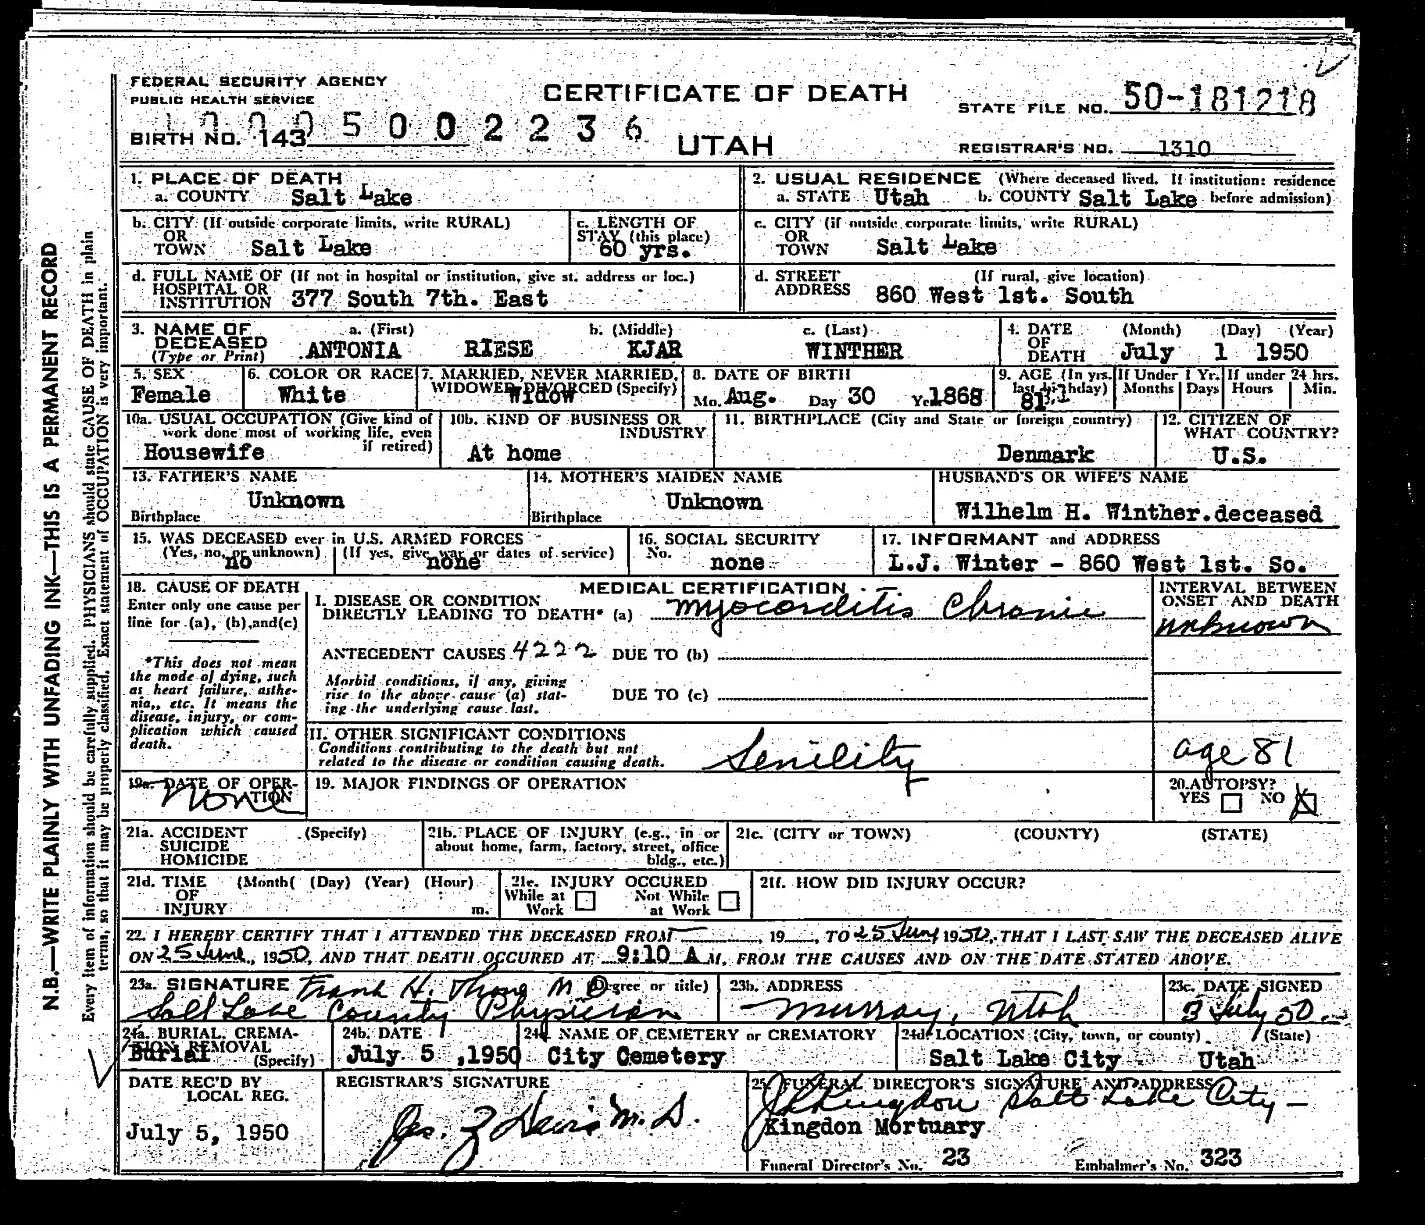 FEDERAL SECURITY AGENCY
PUBLIC HEALTH SERVICE
CERTIFICATE OF DEATH
STATE FILE NO. 50-181218
BIRTH NO. 143
5 0 0 2 2 3 6
UTAH
REGISTRAR'S NO. 1310
1. PLACE OF DEATH
a. COUNTY Salt Lake
2. USUAL RESIDENCE (Where deceased lived. If institution: residence
a. STATE Utah b. COUNTY Salt Lake before admission)
b. CITY (If outside corporate limits, write RURAL)
OR
TOWN Salt Lake
c. LENGTH OF
STAY (this place)
60 yrs.
c. CITY (if outside corporate limits, write RURAL)
OR
TOWN Salt Lake
d. FULL NAME OF (If not in hospital or institution, give st. address or loc.)
HOSPITAL OR
INSTITUTION 377 South 7th. East
d. STREET (If rural, give location)
ADDRESS 860 West 1st. South
3. NAME OF a. (First) b. (Middle) c. (Last)
DECEASED
(Type or Print) ANTONIA RIESE KJAR WINTHER
4. DATE (Month) (Day) (Year)
OF
DEATH July 1 1950
5. SEX
Female
6. COLOR OR RACE
White
7. MARRIED, NEVER MARRIED,
WIDOWED, DIVORCED (Specify)
Widow
8. DATE OF BIRTH
Mo. Aug. Day 30 Yr. 1868
9. AGE (In yrs.
last birthday)
81
If Under 1 Yr.
Months Days
If under 24 hrs.
Hours Min.
10a. USUAL OCCUPATION (Give kind of
work done most of working life, even
if retired)
Housewife
10b. KIND OF BUSINESS OR
INDUSTRY
At home
11. BIRTHPLACE (City and State or foreign country)
Denmark
12. CITIZEN OF
WHAT COUNTRY?
U.S.
13. FATHER'S NAME
Unknown
Birthplace
14. MOTHER'S MAIDEN NAME
Unknown
Birthplace
HUSBAND'S OR WIFE'S NAME
Wilhelm H. Winther.deceased
15. WAS DECEASED ever in U.S. ARMED FORCES
(Yes, no, or unknown) (If yes, give war or dates of service)
no none
16. SOCIAL SECURITY
No. none
17. INFORMANT and ADDRESS
L.J. Winter - 860 West 1st. So.
18. CAUSE OF DEATH
Enter only one cause per
line for (a), (b), and (c)
*This does not mean
the mode of dying, such
as heart failure, asthe-
nia,, etc. It means the
disease, injury, or com-
plication which caused
death.
MEDICAL CERTIFICATION
I. DISEASE OR CONDITION
DIRECTLY LEADING TO DEATH* (a) Myocarditis Chronic
INTERVAL BETWEEN
ONSET AND DEATH
unknown
ANTECEDENT CAUSES 4222 DUE TO (b)
Morbid conditions, if any, giving
rise to the above cause (a) stat-
ing the underlying cause last.
DUE TO (c)
II. OTHER SIGNIFICANT CONDITIONS
Conditions contributing to the death but not
related to the disease or condition causing death.
Senility
age 81
19a. DATE OF OPER-
ATION
None
19. MAJOR FINDINGS OF OPERATION
20. AUTOPSY?
YES NO X
21a. ACCIDENT (Specify)
SUICIDE
HOMICIDE
21b. PLACE OF INJURY (e.g., in or
about home, farm, factory, street, office
bldg., etc.)
21c. (CITY or TOWN) (COUNTY) (STATE)
21d. TIME (Month( (Day) (Year) (Hour)
OF
INJURY m.
21e. INJURY OCCURED
While at Work
Not While at Work
21f. HOW DID INJURY OCCUR?
22. I HEREBY CERTIFY THAT I ATTENDED THE DECEASED FROM , 19 , TO 25 June 1950, THAT I LAST SAW THE DECEASED ALIVE
ON 25 June, 1950, AND THAT DEATH OCCURED AT 9:10 A M, FROM THE CAUSES AND ON THE DATE STATED ABOVE.
23a. SIGNATURE (Degree or title)
Frank H. M D
Salt Lake County Physician
23b. ADDRESS
Murray, Utah
23c. DATE SIGNED
3 July 50
24a. BURIAL, CREMA-
TION REMOVAL
(Specify)
Burial
24b. DATE
July 5 ,1950
24c. NAME OF CEMETERY or CREMATORY
City Cemetery
24d. LOCATION (City, town, or county) (State)
Salt Lake City Utah
DATE REC'D BY
LOCAL REG.
July 5, 1950
REGISTRAR'S SIGNATURE
M.D.
25. FUNERAL DIRECTOR'S SIGNATURE AND ADDRESS
Kingdon Salt Lake City
Kingdon Mortuary
Funeral Director's No. 23 Embalmer's No. 323
N.B.—WRITE PLAINLY WITH UNFADING INK—THIS IS A PERMANENT RECORD
Every item of information should be carefully supplied. PHYSICIANS should state CAUSE OF DEATH in plain
terms, so that it may be properly classified. Exact statement of OCCUPATION is very important.